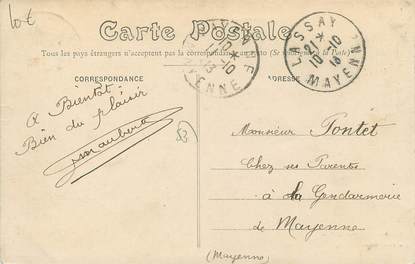 10€
Carte Postale
Tous les pays étrangers n'acceptent pas la correspondance au recto (Se renseigner à la Poste)
CORRESPONDANCE
ADRESSE
MAYENNE
LASSAY
10-10
MAYENNE
à Bientôt
Bien du plaisir
53
Monsieur Pontet
Chez ses Parents
à la Gendarmerie
de Mayenne
(Mayenne)